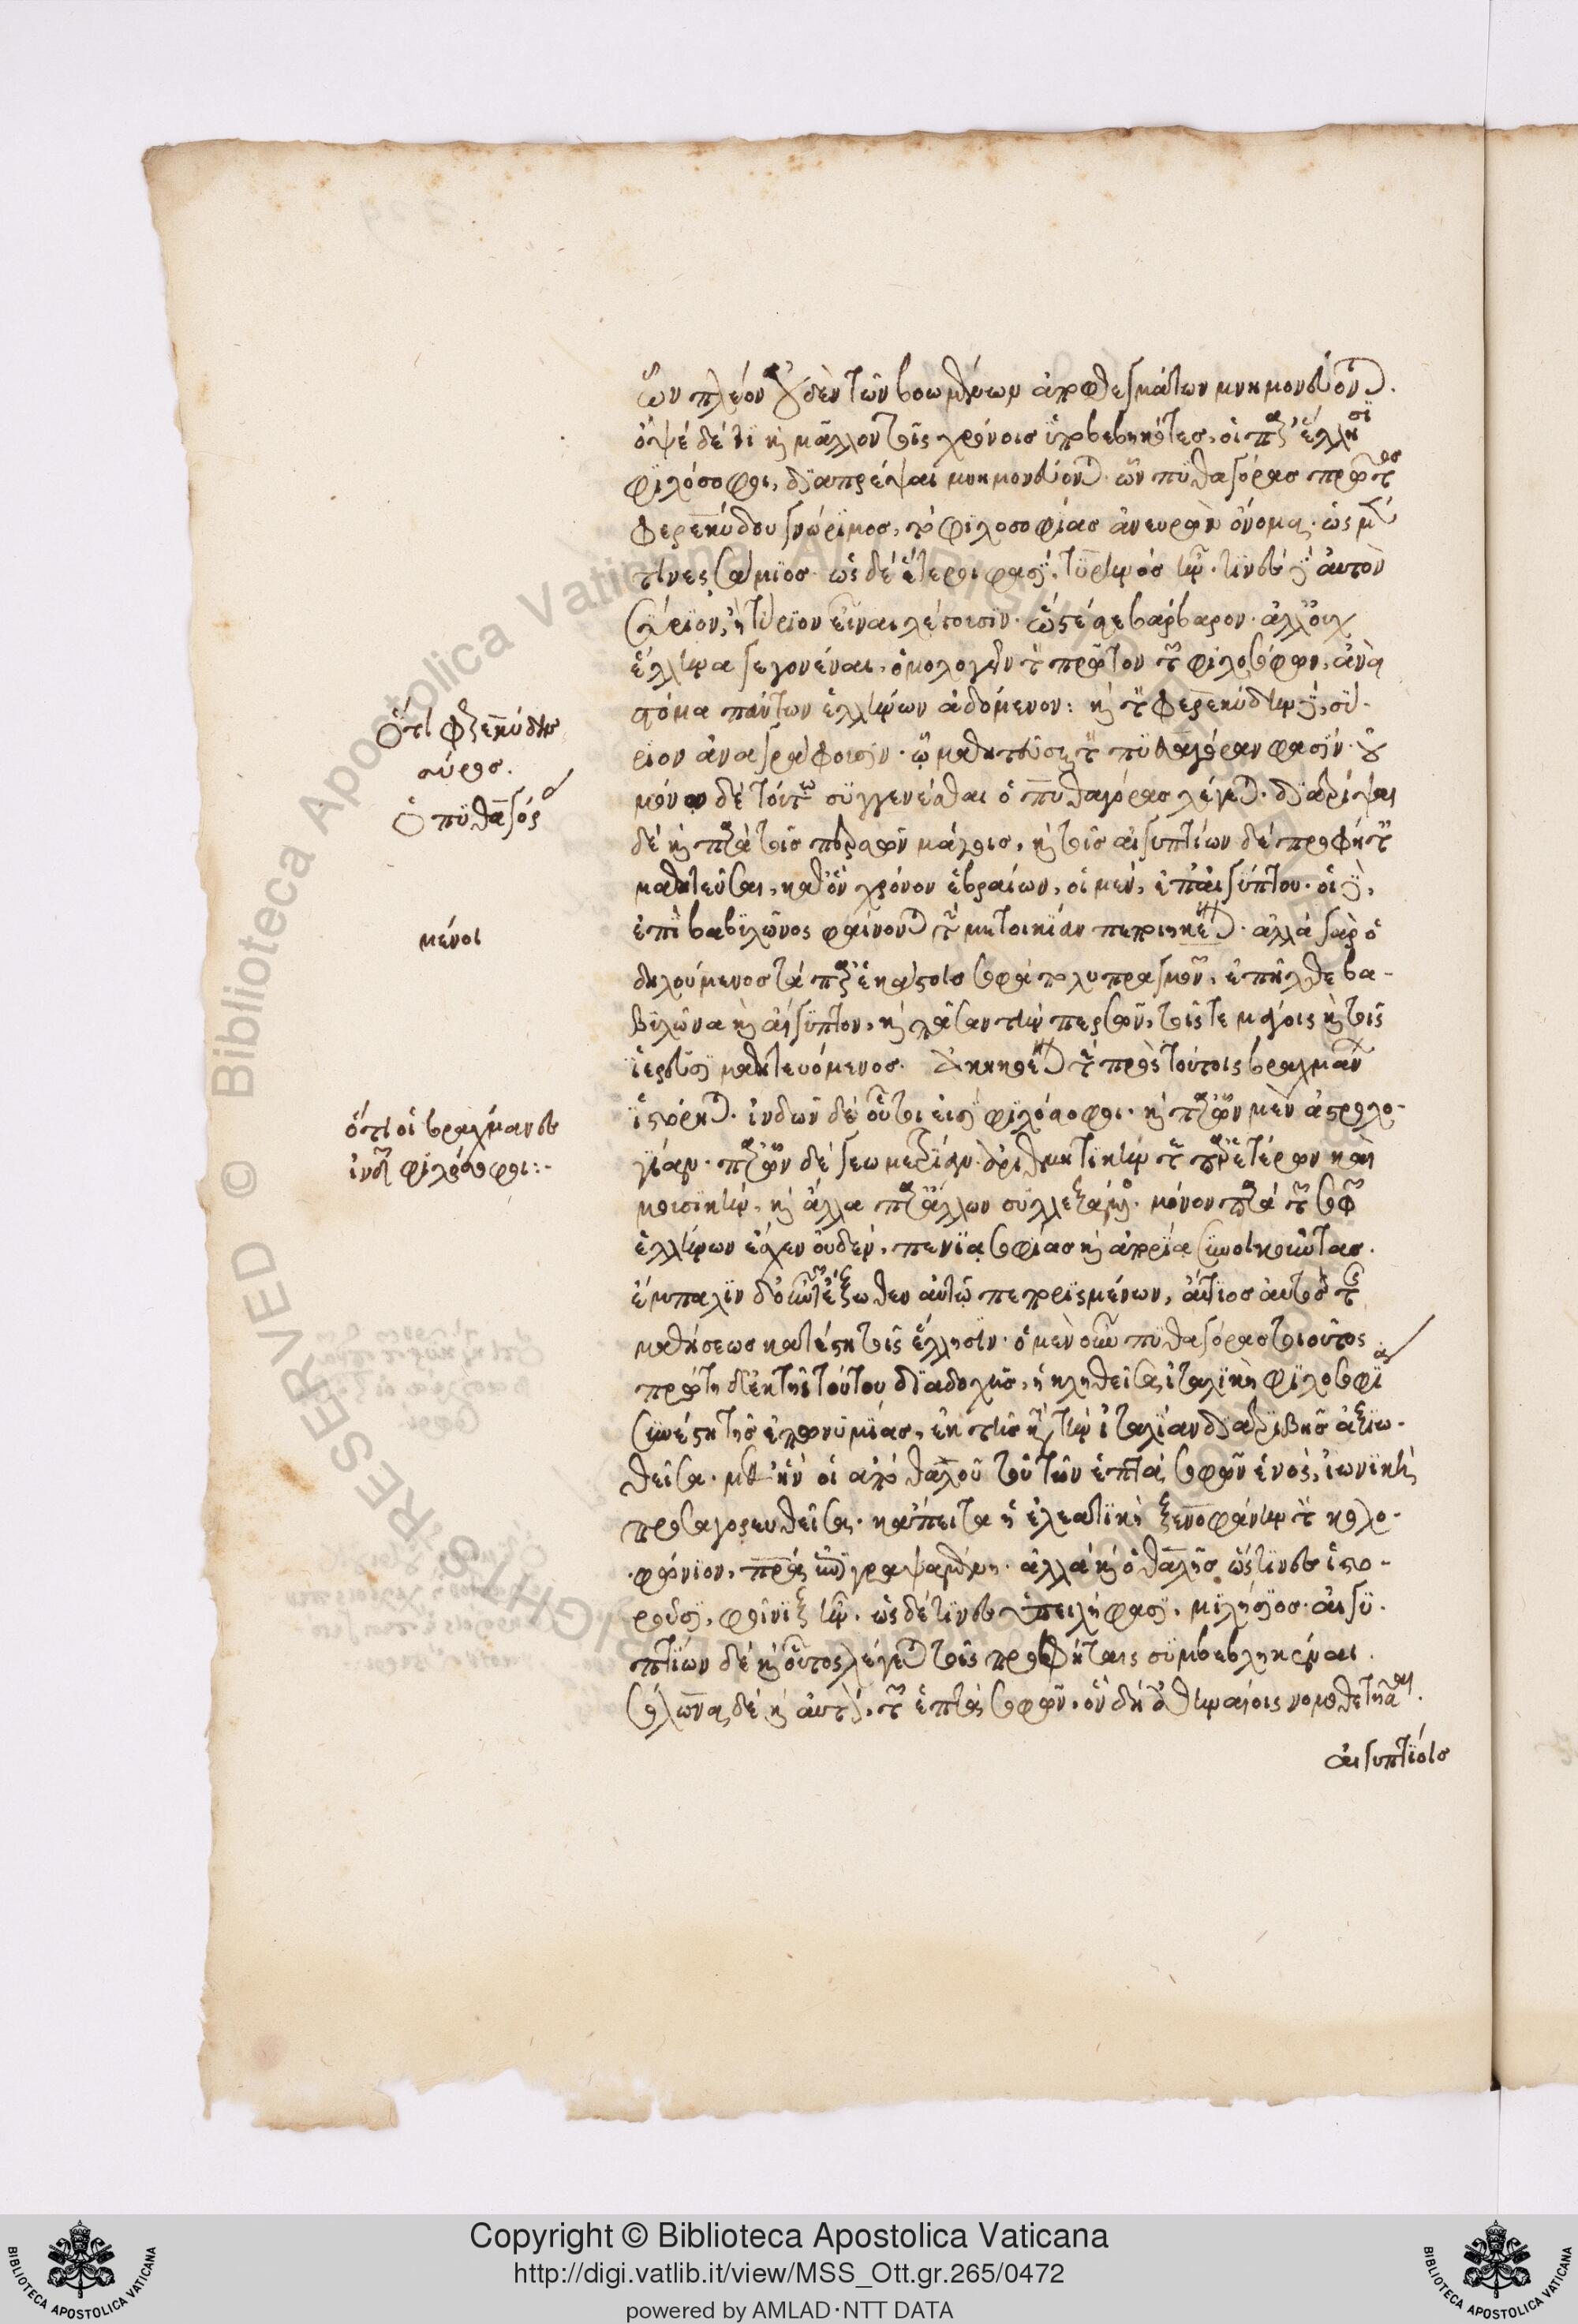 ὧν πλέον οὐδὲν τῶν βοωμένων ἀποτελεσμάτων μνημονεύονται.
ὀψὲ δέ τι καὶ μᾶλλον τοῖς χρόνοις ὑποβεβηκότες, οἱ παρ' ἕλλησι
φιλόσοφοι, διαπρέψαι μνημονεύονται. ὧν πυθαγόρας πρῶτος
φερεκύδου γνώριμος, τὸ φιλοσοφίας ἀνευρὼν ὄνομα. ὡς μέν
τινες σάμιος. ὡς δὲ ἕτεροι φασὶ, τυρρηνὸς ἦν. τινὲς δὲ αὐτὸν
σύριον, ἢ τύριον εἶναι λέγουσιν. ὥστέ σε βάρβαρον. ἀλλ' οὐχ
ἕλληνα γεγονέναι, ὁμολογεῖν τὸν πρῶτον τῶν φιλοσόφων, ἀνὰ
στόμα πάντων ἑλλήνων ἀδόμενον: καὶ τὸν φερεκύδην δὲ, σύ-
ριον ἀναγράφουσιν. ᾧ μαθητεῦσαι τὸν πυθαγόραν φασίν. οὐ
μόνῳ δὲ τούτῳ συγγενέσθαι ὁ πυθαγόρας λέγεται. διατρίψαι
δὲ καὶ παρὰ τοῖς περσῶν μάγοις, καὶ τοῖς αἰγυπτίων δὲ προφήταις
μαθητεῦσαι, καθ' ὃν χρόνον ἑβραίων, οἱ μὲν, ἐπ' αἰγύπτου. οἱ δὲ,
ἐπὶ βαβυλῶνος φαίνονται τὴν μετοικίαν
ἀλλὰ γὰρ ὁ
δηλούμενος τὰ παρ' ἑκάστοις σοφὰ πολυπραγμονῶν, ἐπῆλθε βα-
βυλῶνα καὶ αἴγυπτον, καὶ πᾶσαν τὴν περσῶν, τοῖς τε μάγοις καὶ τοῖς
ἱερεῦσι μαθητευόμενος.
πρὸς τούτοις βραχμάνων
ἱστόρηται. ἰνδῶν δὲ οὗτοί εἰσι φιλόσοφοι. καὶ παρ' ὧν μὲν ἀστρολο-
γίαν. παρ' ὧν δὲ γεωμετρίαν. ἀριθμητικήν τε παρ' ἑτέρων καὶ
μουσικήν. καὶ ἄλλα παρ' ἄλλων συλλεξάμενος. μόνον παρὰ τῶν σοφῶν
ἑλλήνων ἔσχεν οὐδέν, πενίᾳ σοφίας καὶ ἀπορίᾳ συνοικοῦντας.
ἔμπαλιν δ' οὖν τῶν ἔξωθεν αὐτῷ πεπορισμένων, αἴτιος αὐτὸς τῆς
μαθήσεως κατέστη τοῖς ἕλλησιν. ὁ μὲν οὖν πυθαγόρας τοιοῦτος
πρώτη δ' ἐκ τῆς τούτου διαδοχῆς, ἡ κληθεῖσα ἰταλικὴ φιλοσοφία
συνέστη τῆς ἐπωνυμίας, ἐκ τῆς κατὰ τὴν ἰταλίαν διατριβῆς ἀξιω-
θεῖσα. μεθ' ἣν οἱ ἀπὸ θαλοῦ τοῦ τῶν ἑπτὰ σοφῶν ἑνὸς, ἰωνικὴ
προσαγορευθεῖσα. κἄπειτα ἡ ἐλεατικὴ ξενοφάνην τὸν κολο-
φώνιον, πατέρα ἐπιγραψαμένη. ἀλλὰ καὶ ὁ θαλῆς ὥς τινες ἱστο-
ροῦσι, φοῖνιξ ἦν. ὡς δέ τινες ὑπειλήφασι, μιλήσιος. αἰγυ-
πτίων δὲ καὶ οὗτος λέγεται τοῖς προφήταις συμβεβληκέναι.
σόλωνα δὲ καὶ αὐτὸν, τῶν ἑπτὰ σοφῶν, ὃν δὴ ἀθηναίοις νομοθετῆσαι.
αἰγυπτίοις
ὅτι φερεκύδης
σύρος.
ὁ πυθαγόρας
μένοι
ὅτι οἱ βραχμᾶνες
ἰνδῶν φιλόσοφοι:-
Copyright © Biblioteca Apostolica Vaticana
http://digi.vatlib.it/view/MSS_Ott.gr.265/0472
powered by AMLAD·NTT DATA
BIBLIOTECA APOSTOLICA VATICANA
BIBLIOTECA APOSTOLICA VATICANA